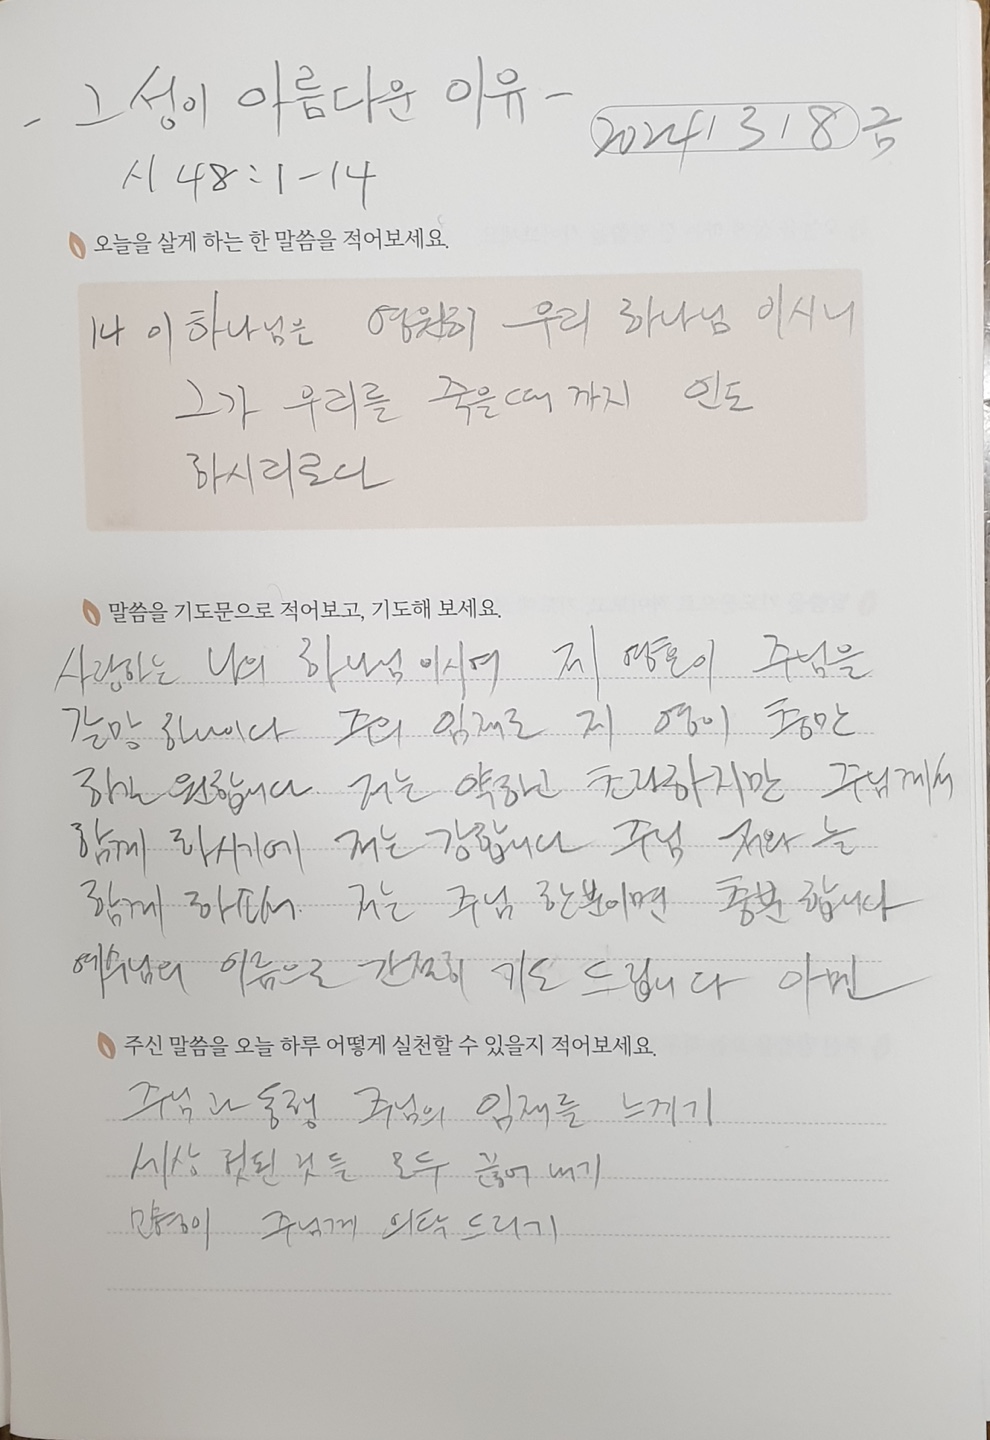 - 그 성이 아름다운 이유 -
2024 / 3 / 8 금
시 48 : 1 - 14
오늘을 살게 하는 한 말씀을 적어보세요.
14 이 하나님은 영원히 우리 하나님 이시니
그가 우리를 죽을때 까지 인도
하시리로다
말씀을 기도문으로 적어보고, 기도해 보세요.
사랑하는 나의 하나님 이시여 제 영혼이 주님을
갈망 하나이다 주의 임재로 제 영이 충만
하길 원합니다 저는 약하고 초라하지만 주님께서
함께 하시기에 저는 강합니다 주님 저와 늘
함께 하며 저는 주님 한분이면 충분 합니다
예수님의 이름으로 간절히 기도 드립니다 아멘
주신 말씀을 오늘 하루 어떻게 실천할 수 있을지 적어보세요.
주님과 동행 주님의 임재를 느끼기
세상 헛된 것들 모두 끊어 내기
주님께 의탁 드리기